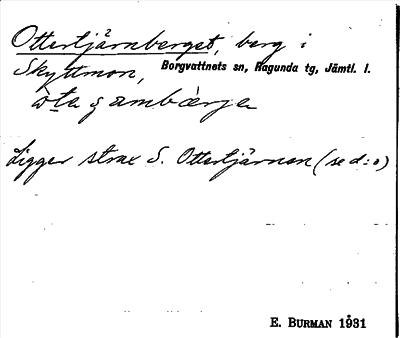 Ottertjärnberget, berg i
Skyttmon, Borgvattnets sn, Ragunda tg, Jämtl. l.
Ligger strax S. Ottertjärnen (se d:o)
E. BURMAN 1931